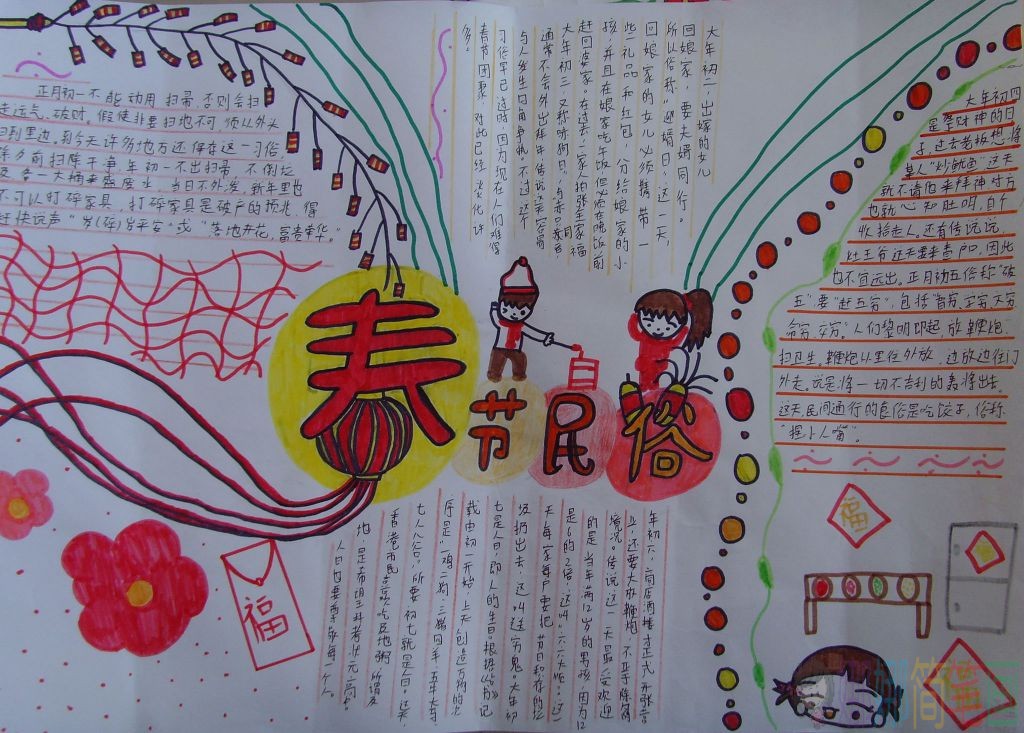 春节民俗
正月初一不能动用扫帚,否则会扫
走运气、破财。假使非要扫地不可,须从外头
扫到里边。到今天许多地方还保存这一习俗,
除夕前扫除干净,年初一不出扫帚,不倒垃
圾,备一大桶来盛废水,当日不外泼,新年里也
不可以打碎家具,打碎家具是破产的预兆,得
赶快说声"岁(碎)岁平安"或"落地开花,富贵荣华。"
大年初二,出嫁的女儿
回娘家,要夫婿同行。
所以俗称"迎婿日,这一天,
回娘家的女儿必须携带一
些礼品和红包,分给娘家的小
孩,并且在娘家吃午饭但必须在晚饭前
赶回婆家。在过去,一家人拍张全家福
大年初三,又称赤狗日,
通常不会外出拜年传说这天容易
与人发生口角争执。不过这个
习俗早已过时,因为现在人们难得
春节团聚,对此已经淡化许
多。
大年初四
是祭财神的日
子,过去老板想将
某人"炒鱿鱼",这天
就不请他来拜神对方
也就心知肚明,自个
收拾走人。还有传说说,
灶王爷这天要来查户口,因此
也不宜远出。正月初五俗称"破
五",要"赶五穷",包括"智穷、学穷、文穷
命穷、交穷"人们黎明即起,放鞭炮
扫卫生。鞭炮从里往外放,边放边往门
外走。说是将一切不吉利的东西轰出去。
这天,民间通行的食俗是吃饺子,俗称
"捏小人嘴"。
年初六,商店酒楼才正式开张营
业,还要大放鞭炮,不亚于除夕的
境况。传说这一天最受欢迎
的是当年满12岁的男孩,因为12
是6的2倍,这叫六六大顺。这一
天,每家每户要把节日积存的垃
圾扔出去,这叫送穷鬼。大年初
七是人日,即人的生日。根据《占书》记
载由初一开始,上天创造万物的次
序是"一鸡二狗,三猪四羊,五牛六马
七人八谷",所以初七就是人日。这天
香港市民喜欢吃及地粥,所谓及
地,是希望科考状元高中。
人日也要尊敬每一个人。
福
福
福